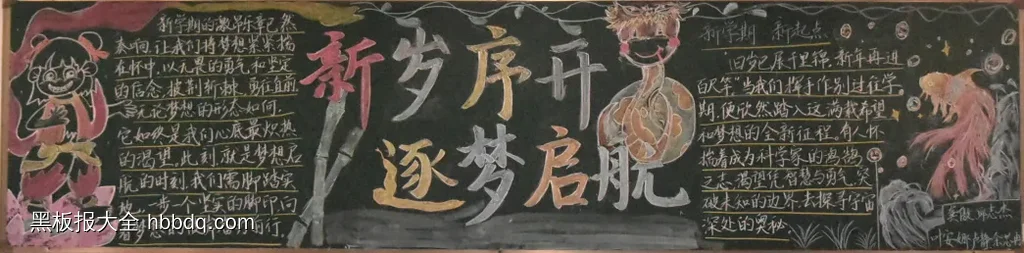 新学期的激昂乐章已然
奏响,让我们将梦想紧紧揣
在怀中,以无畏的勇气和坚定
的信念,披荆斩棘,勇往直前
无论梦想的形态如何,
它如终是我们心底最炽热
的渴望。此刻,就是梦想启
航的时刻,我们需脚踏实
一步一个坚实的脚印向
着梦想的
前行。
黑板报大全 hbbdq.com
新岁序开
逐梦启航
新学期 新起点
"旧岁已展千里锦,新年再进
百尺竿"当我们挥手作别过往学
期,便欣然踏入这满载希望
和梦想的全新征程。有人怀
揣着成为科学家的鸿鹄
之志,渴望凭智慧与勇气,突
破未知的边界,去探寻宇宙
深处的奥秘。